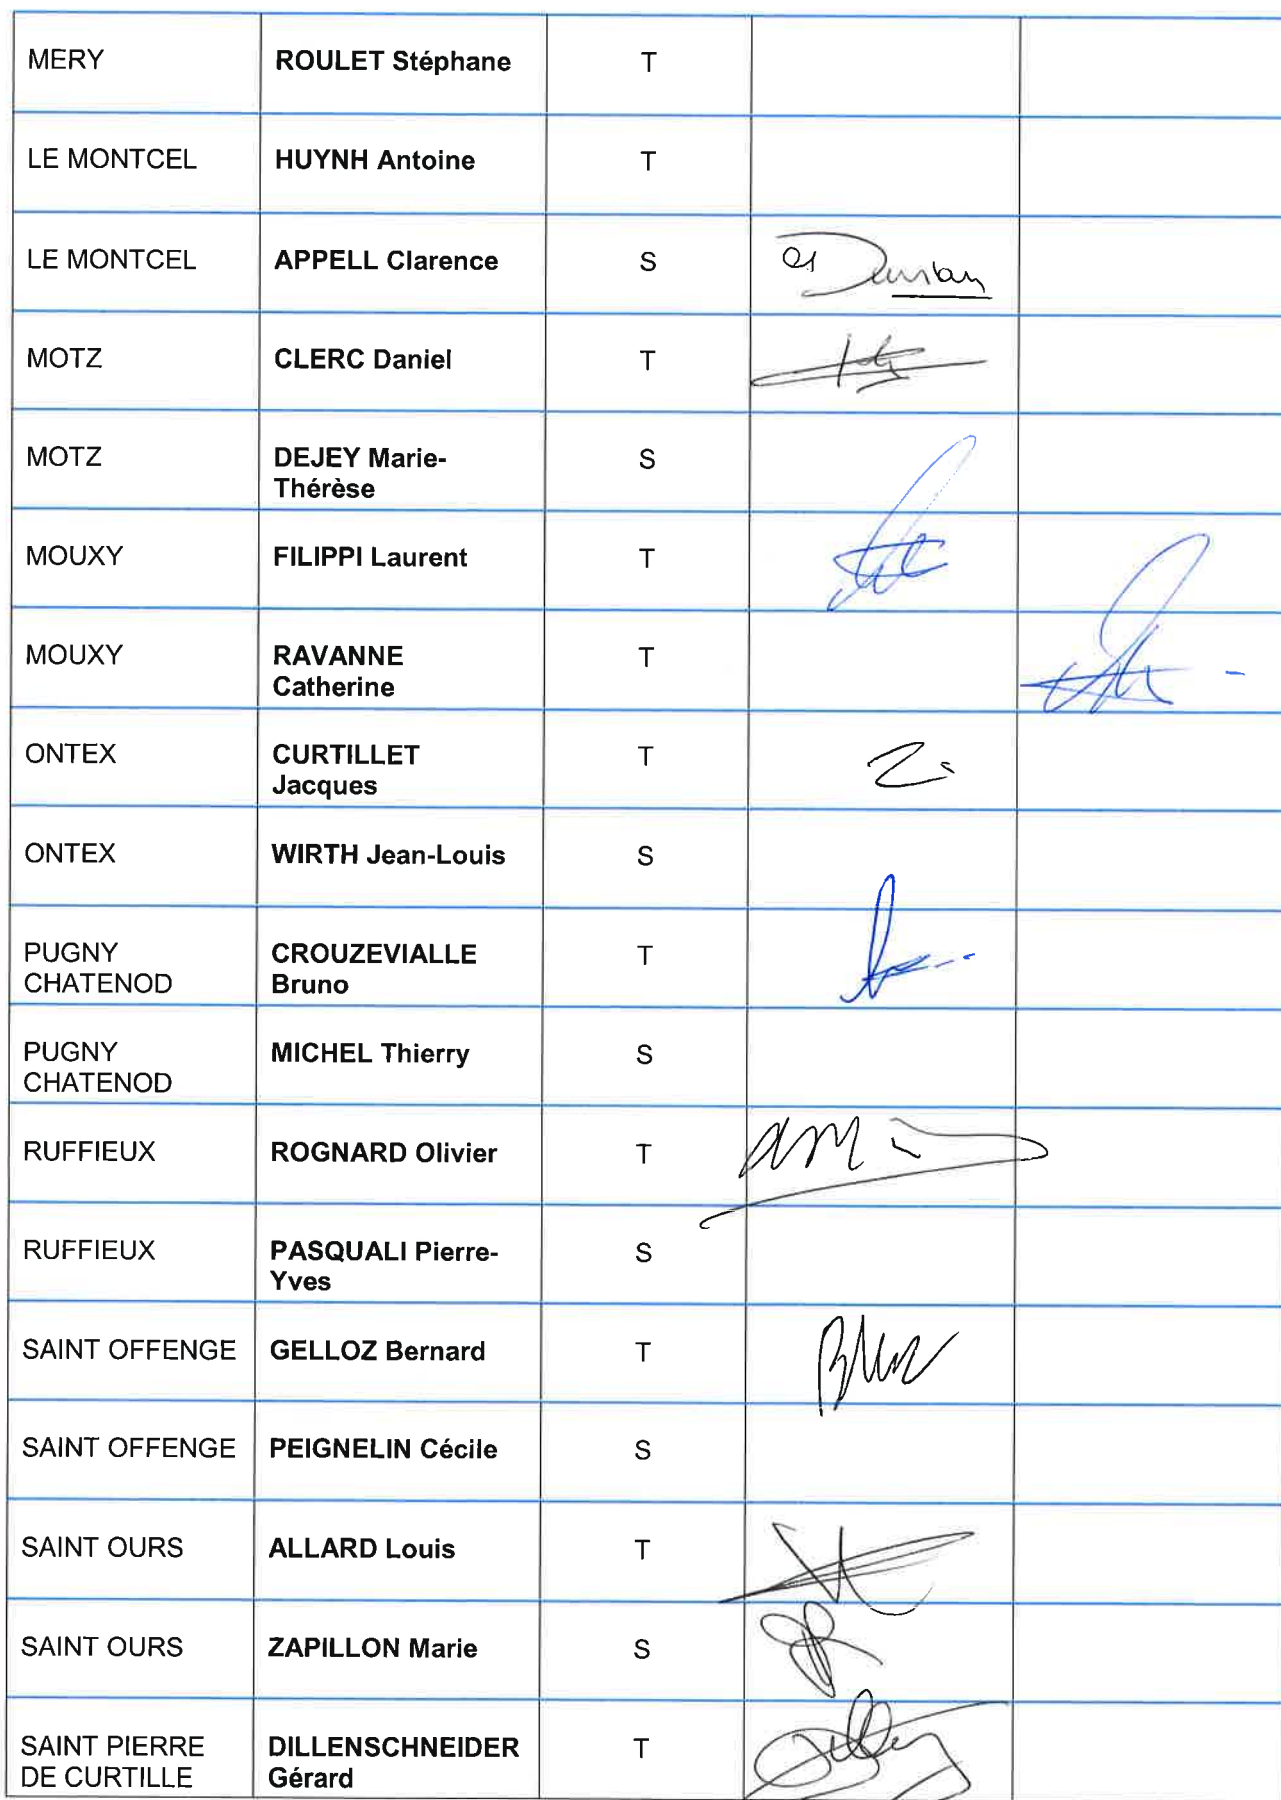 MERY ROULET Stéphane T
LE MONTCEL HUYNH Antoine T
LE MONTCEL APPELL Clarence S
MOTZ CLERC Daniel T
MOTZ DEJEY Marie- S
Thérèse
MOUXY FILIPPI Laurent T
MOUXY RAVANNE T
Catherine
ONTEX CURTILLET T
Jacques
ONTEX WIRTH Jean-Louis S
PUGNY CROUZEVIALLE T
CHATENOD Bruno
PUGNY MICHEL Thierry S
CHATENOD
RUFFIEUX ROGNARD Olivier T
RUFFIEUX PASQUALI Pierre- S
Yves
SAINT OFFENGE GELLOZ Bernard T
SAINT OFFENGE PEIGNELIN Cécile S
SAINT OURS ALLARD Louis T
SAINT OURS ZAPILLON Marie S
SAINT PIERRE DILLENSCHNEIDER T
DE CURTILLE Gérard